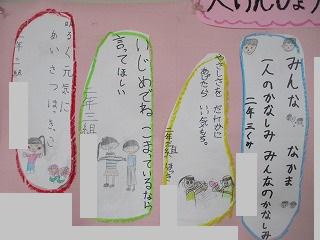 人けんひょう
みんな なかま
一人のかなしみ みんなのかなしみ
二年 三くみ
やさしさを だれかに
あげたら いい気もち。
二年三組
いじめでね こまっているなら
言ってほしい
二年三組
明るく元気に
あいさつ
二年三組